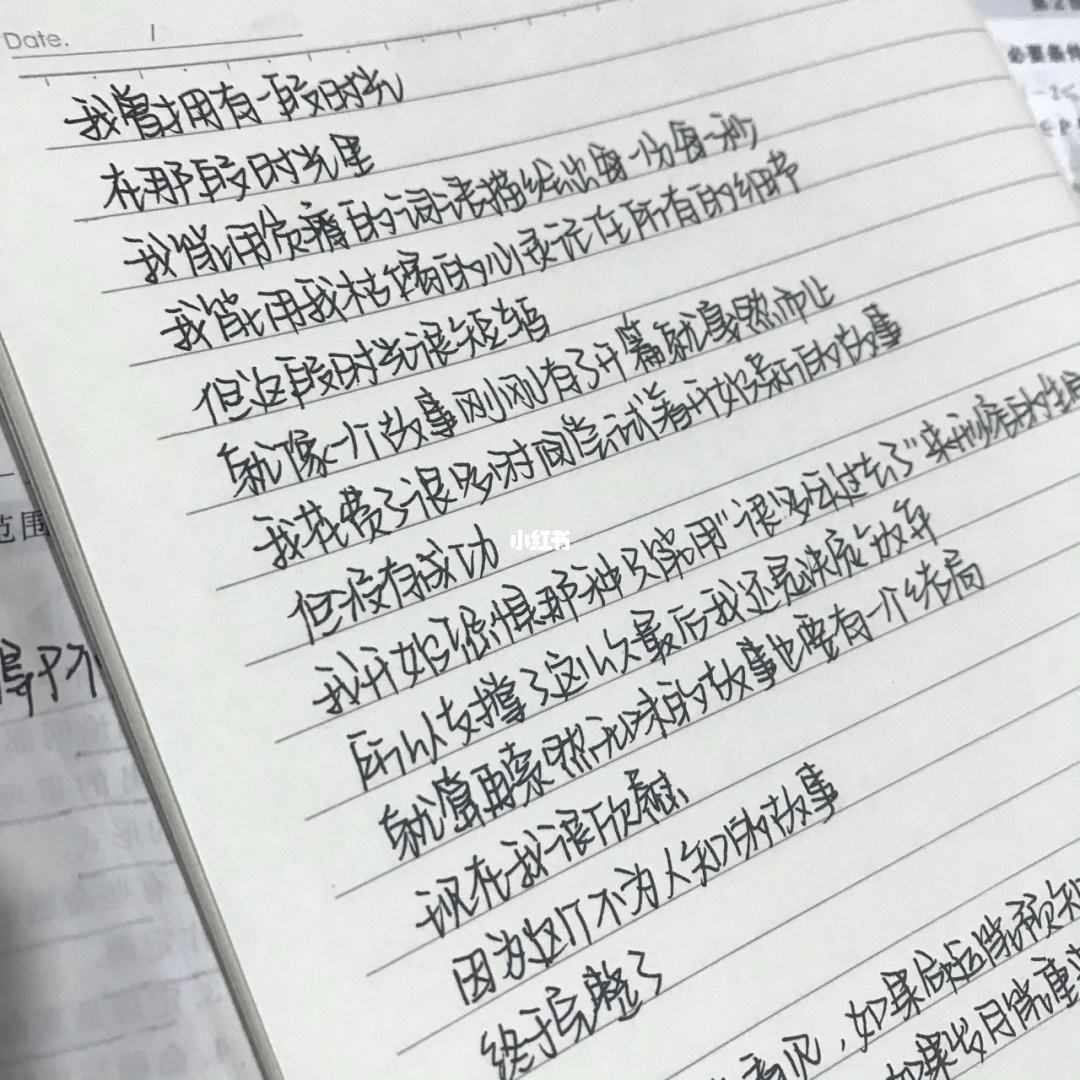 Date. 1
我曾拥有一段时光
在那段时光里
我能用贫瘠的词语描绘出每一分每一秒
我能用我枯瘠的心灵记住所有的细节
但这段时光很短暂
就像一个故事刚刚有了开篇就戛然而止
我花费了很多时间尝试着开始新的故事
但没有成功
我开始恐惧那种只能用“很多年过去了”来形容的生
所以支撑了这么久最后我还是决定放弃
就算再索然无味的故事也要有一个结局
现在我很欣慰
因为这个不为人知的故事
终于完整了
如果后
如果岁月能重
小红书
必要条件
范围
得不